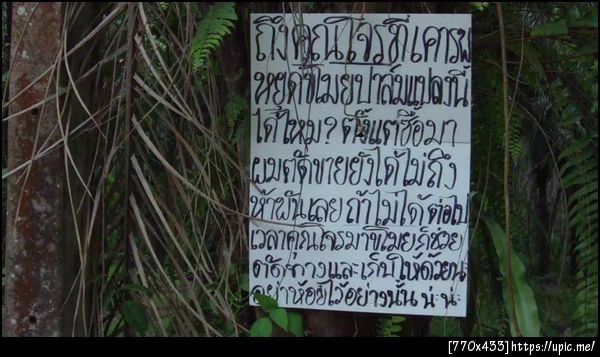 ถึงคุณโจรที่เคารพ
หยุดขโมยปาล์มแปลงนี้
ได้ไหม? ตั้งแต่ซื้อมา
ผมตัดขายยังได้ไม่ถึง
ห้าพันเลย ถ้าไม่ได้ ต่อไป
เวลาคุณโจรมาขโมยก็ช่วย
ตัด ทางและเก็บให้ด้วยนะ
อย่าห้อยไว้อย่างนั้น น่ะนะ
[770x433]https://upic.me/